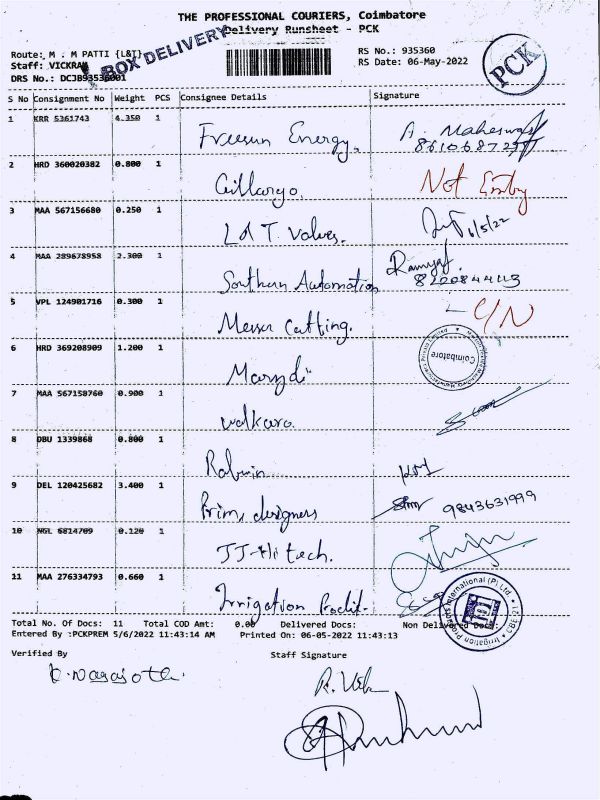 THE PROFESSIONAL COURIERS, Coimbatore
Delivery Runsheet - PCK
BOX DELIVERY
PCK
Route: M . M PATTI {L&T}
Staff: VICKRAM
DRS No.: DCJB93536001
RS No.: 935360
RS Date: 06-May-2022
S No Consignment No Weight PCS Consignee Details Signature
1 KRR 5361743 4.350 1 Freesun Energy. A. Maheswa
2 HRD 360020382 0.800 1 Not Entry
3 MAA 567156680 0.250 1 L&T. Valves. 6/5/22
4 MAA 289678958 2.300 1 Southern Automation 8220844113
5 VPL 124901716 0.300 1 Messer Cutting. C/N
6 HRD 369208909 1.200 1 Coimbatore
7 MAA 567158760 0.900 1 walkaro.
8 DBU 1339868 0.800 1
9 DEL 120425682 3.400 1 Prime designers 9843631999
10 NGL 6814709 0.120 1 JJ-Hi tech.
11 MAA 276334793 0.660 1 Irrigation Prodct.
Total No. Of Docs: 11 Total COD Amt: 0.00 Delivered Docs: Non Delivered Docs:
Entered By :PCKPREM 5/6/2022 11:43:14 AM Printed On: 06-05-2022 11:43:13
Verified By Staff Signature